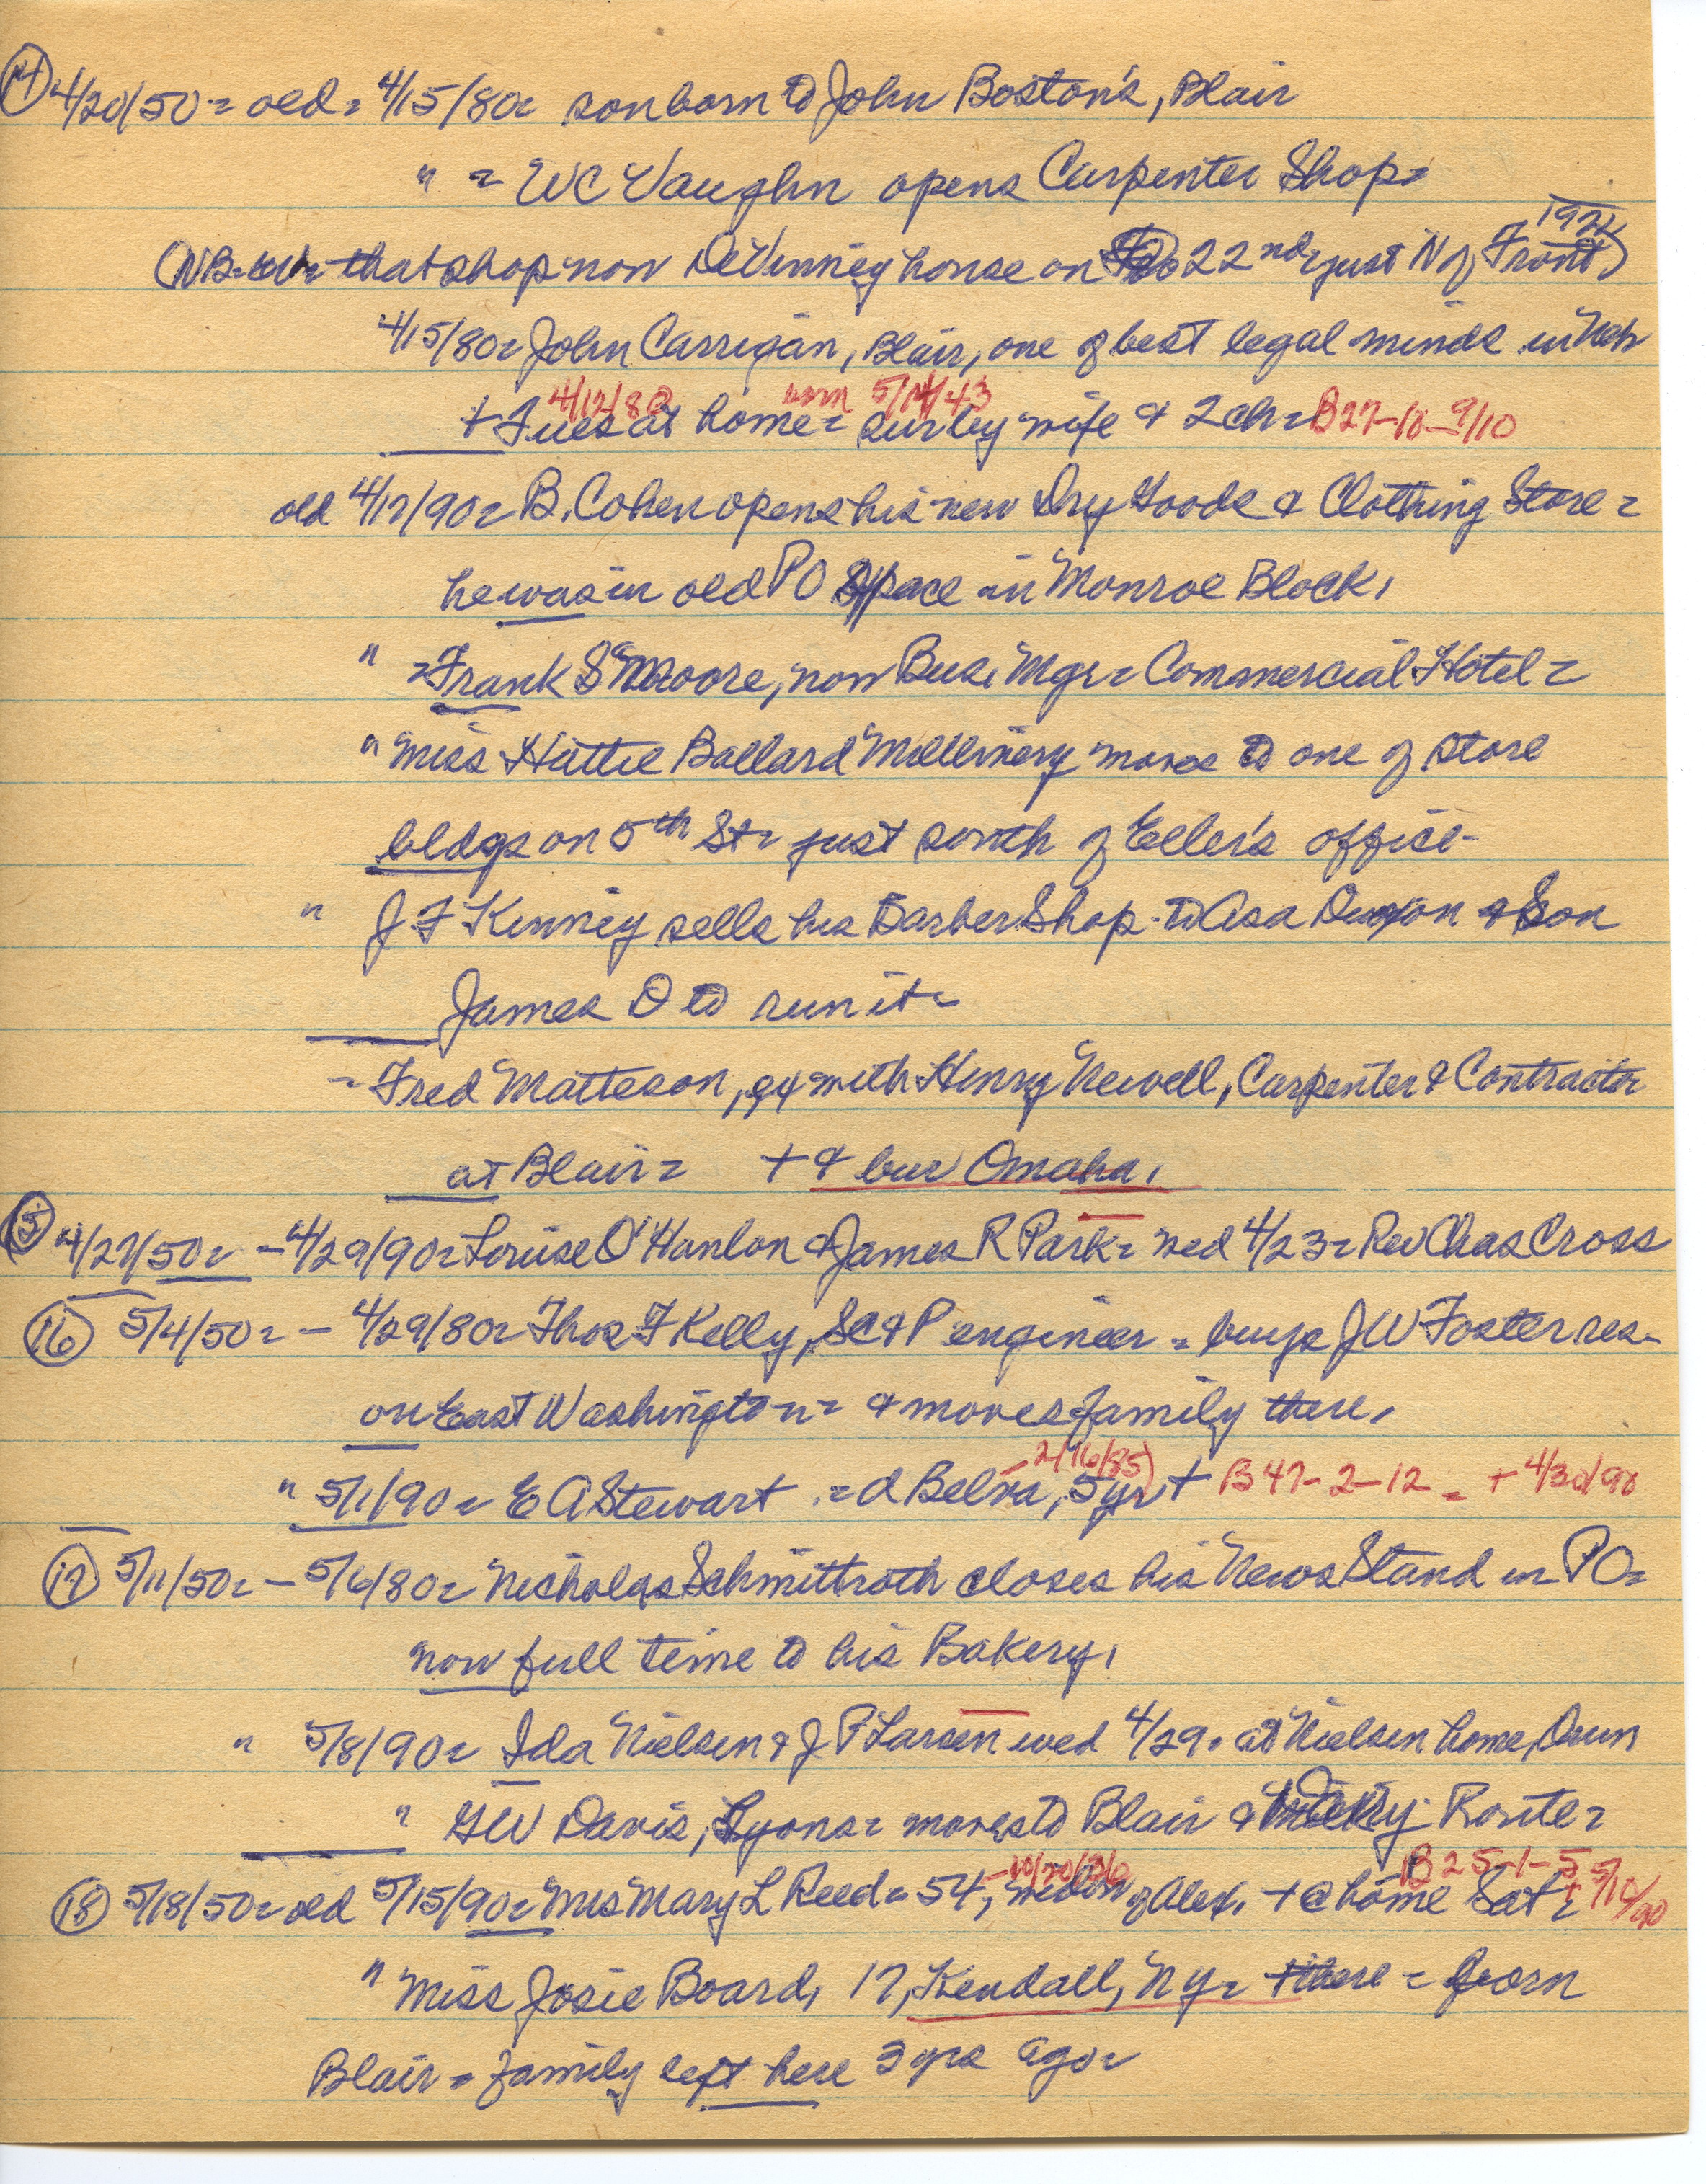 (14) 4/20/50 = old = 4/15/80 = son born to John Boston's, Blair
" = WC Vaughn opens Carpenter Shop =
1921
(NB = that shop now DeVinney house on 22nd, just N of Front)
4/15/80 = John Carrigan, Blair, one of best legal minds in Neb
4/12/80 born 5/14/43
+ Tues at home = sur by wife & 2 ch = B27-18-9/10
old 4/17/90 = B. Cohen opens his new Dry Goods & Clothing Store =
he was in old PO Space in Monroe Block,
" = Frank S Moore, now Bus. Mgr = Commercial Hotel =
" Miss Hattie Ballard Millinery moves to one of store
bldgs on 5th St = just south of Eller's office -
" J F Kinney sells his Barber Shop to Asa Dixon & Son
James D to run it =
= Fred Matteson, ex with Henry Newell, Carpenter & Contractor
at Blair = + & bur Omaha,
(15) 4/27/50 = - 4/29/90 = Louise O'Hanlon & James R Park = wed 4/23 = Rev Chas Cross
(16) 5/4/50 = - 4/29/80 = Thos F Kelly, SC&P engineer = buys J W Foster res -
on East Washington = & moves family there,
- 2/16/85)
" 5/1/90 = E A Stewart = d Belva, 5 yr + B 47-2-12 = + 4/30/90
(17) 5/11/50 = - 5/6/80 = Nicholas Schmittroth closes his News Stand in PO =
now full time to his Bakery,
" 5/8/90 = Ida Nielsen & J P Larsen wed 4/29 = at Nielsen home, Dunn
" GW Davis, Lyons = moves to Blair & Route =
- 10/20/36 B 25-1-5
(18) 5/18/50 = old 5/15/90 = Mrs Mary L Reed = 54, widow of Alex, + @ home Sat = 5/10/90
" Miss Josie Board, 17, Kendall, Ny = + there = born
Blair = family left here 3 yrs ago =